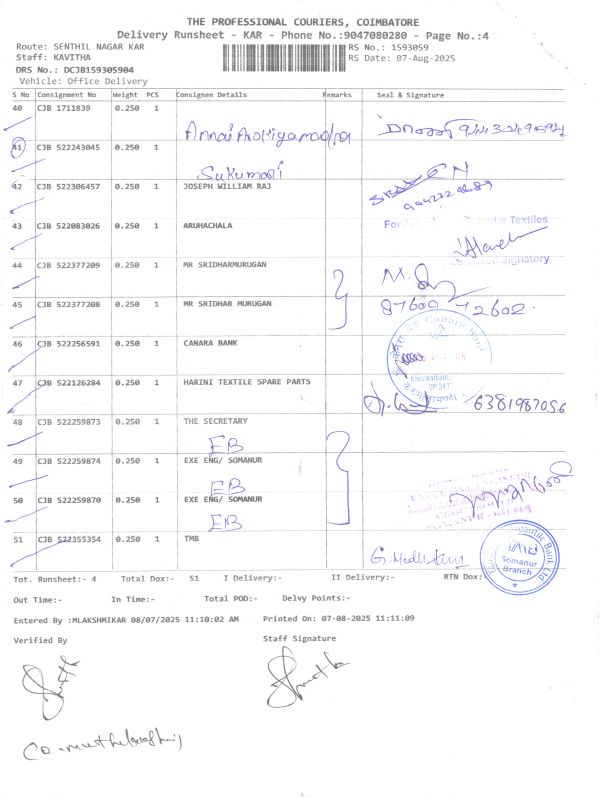 THE PROFESSIONAL COURIERS, COIMBATORE
Delivery Runsheet - KAR - Phone No.:9047080280 - Page No.:4
Route: SENTHIL NAGAR KAR
RS No.: 1593059
Staff: KAVITHA
RS Date: 07-Aug-2025
DRS No.: DCJB159305904
Vehicle: Office Delivery
S No Consignment No Weight PCS Consignee Details Remarks Seal & Signature
40 CJB 1711839 0.250 1
41 CJB 522243045 0.250 1
Sukumari
42 CJB 522306457 0.250 1 JOSEPH WILLIAM RAJ
43 CJB 522083026 0.250 1 ARUHACHALA
For Textiles
Signatory
44 CJB 522377209 0.250 1 MR SRIDHARMURUGAN
45 CJB 522377208 0.250 1 MR SRIDHAR MURUGAN
87600 72602
46 CJB 522256591 0.250 1 CANARA BANK
Canara Bank
47 CJB 522126284 0.250 1 HARINI TEXTILE SPARE PARTS
6381987056
48 CJB 522259873 0.250 1 THE SECRETARY
EB
49 CJB 522259874 0.250 1 EXE ENG/ SOMANUR
EB
50 CJB 522259870 0.250 1 EXE ENG/ SOMANUR
EB
51 CJB 522355354 0.250 1 TMB
Mercantile Bank Ltd
Somanur
Branch
Tot. Runsheet:- 4 Total Dox:- 51 I Delivery:- II Delivery:- RTN Dox:-
Out Time:- In Time:- Total POD:- Delvy Points:-
Entered By :MLAKSHMIKAR 08/07/2025 11:10:02 AM Printed On: 07-08-2025 11:11:09
Verified By Staff Signature